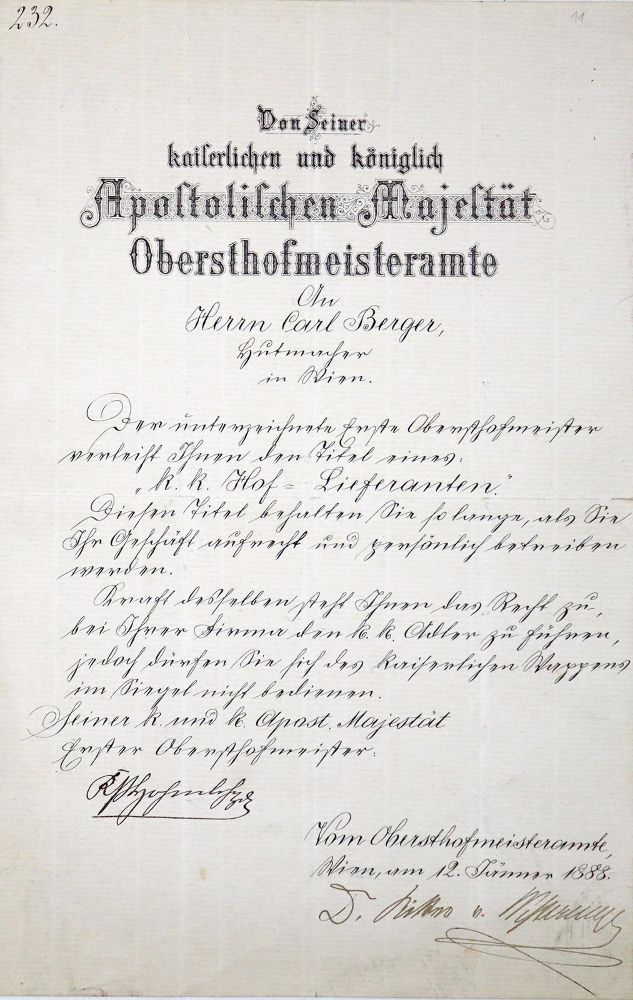 232.
11
Von Seiner
kaiserlichen und königlich
Apostolischen Majestät
Obersthofmeisteramte
An
Herrn Carl Berger,
Hutmacher
in Wien.
Der unterzeichnete Erste Obersthofmeister
verleiht Ihnen den Titel eines:
„k. k. Hof-Lieferanten."
Diesen Titel behalten Sie so lange, als Sie
Ihr Geschäft aufrecht und persönlich betreiben
werden.
Kraft desselben steht Ihnen das Recht zu,
bei Ihrer Firma den k. k. Adler zu führen,
jedoch dürfen Sie sich des kaiserlichen Wappens
im Siegel nicht bedienen.
Seiner k. und k. Apost. Majestät
Erster Obersthofmeister:
Vom Obersthofmeisteramte,
Wien, am 12. Jänner 1888.